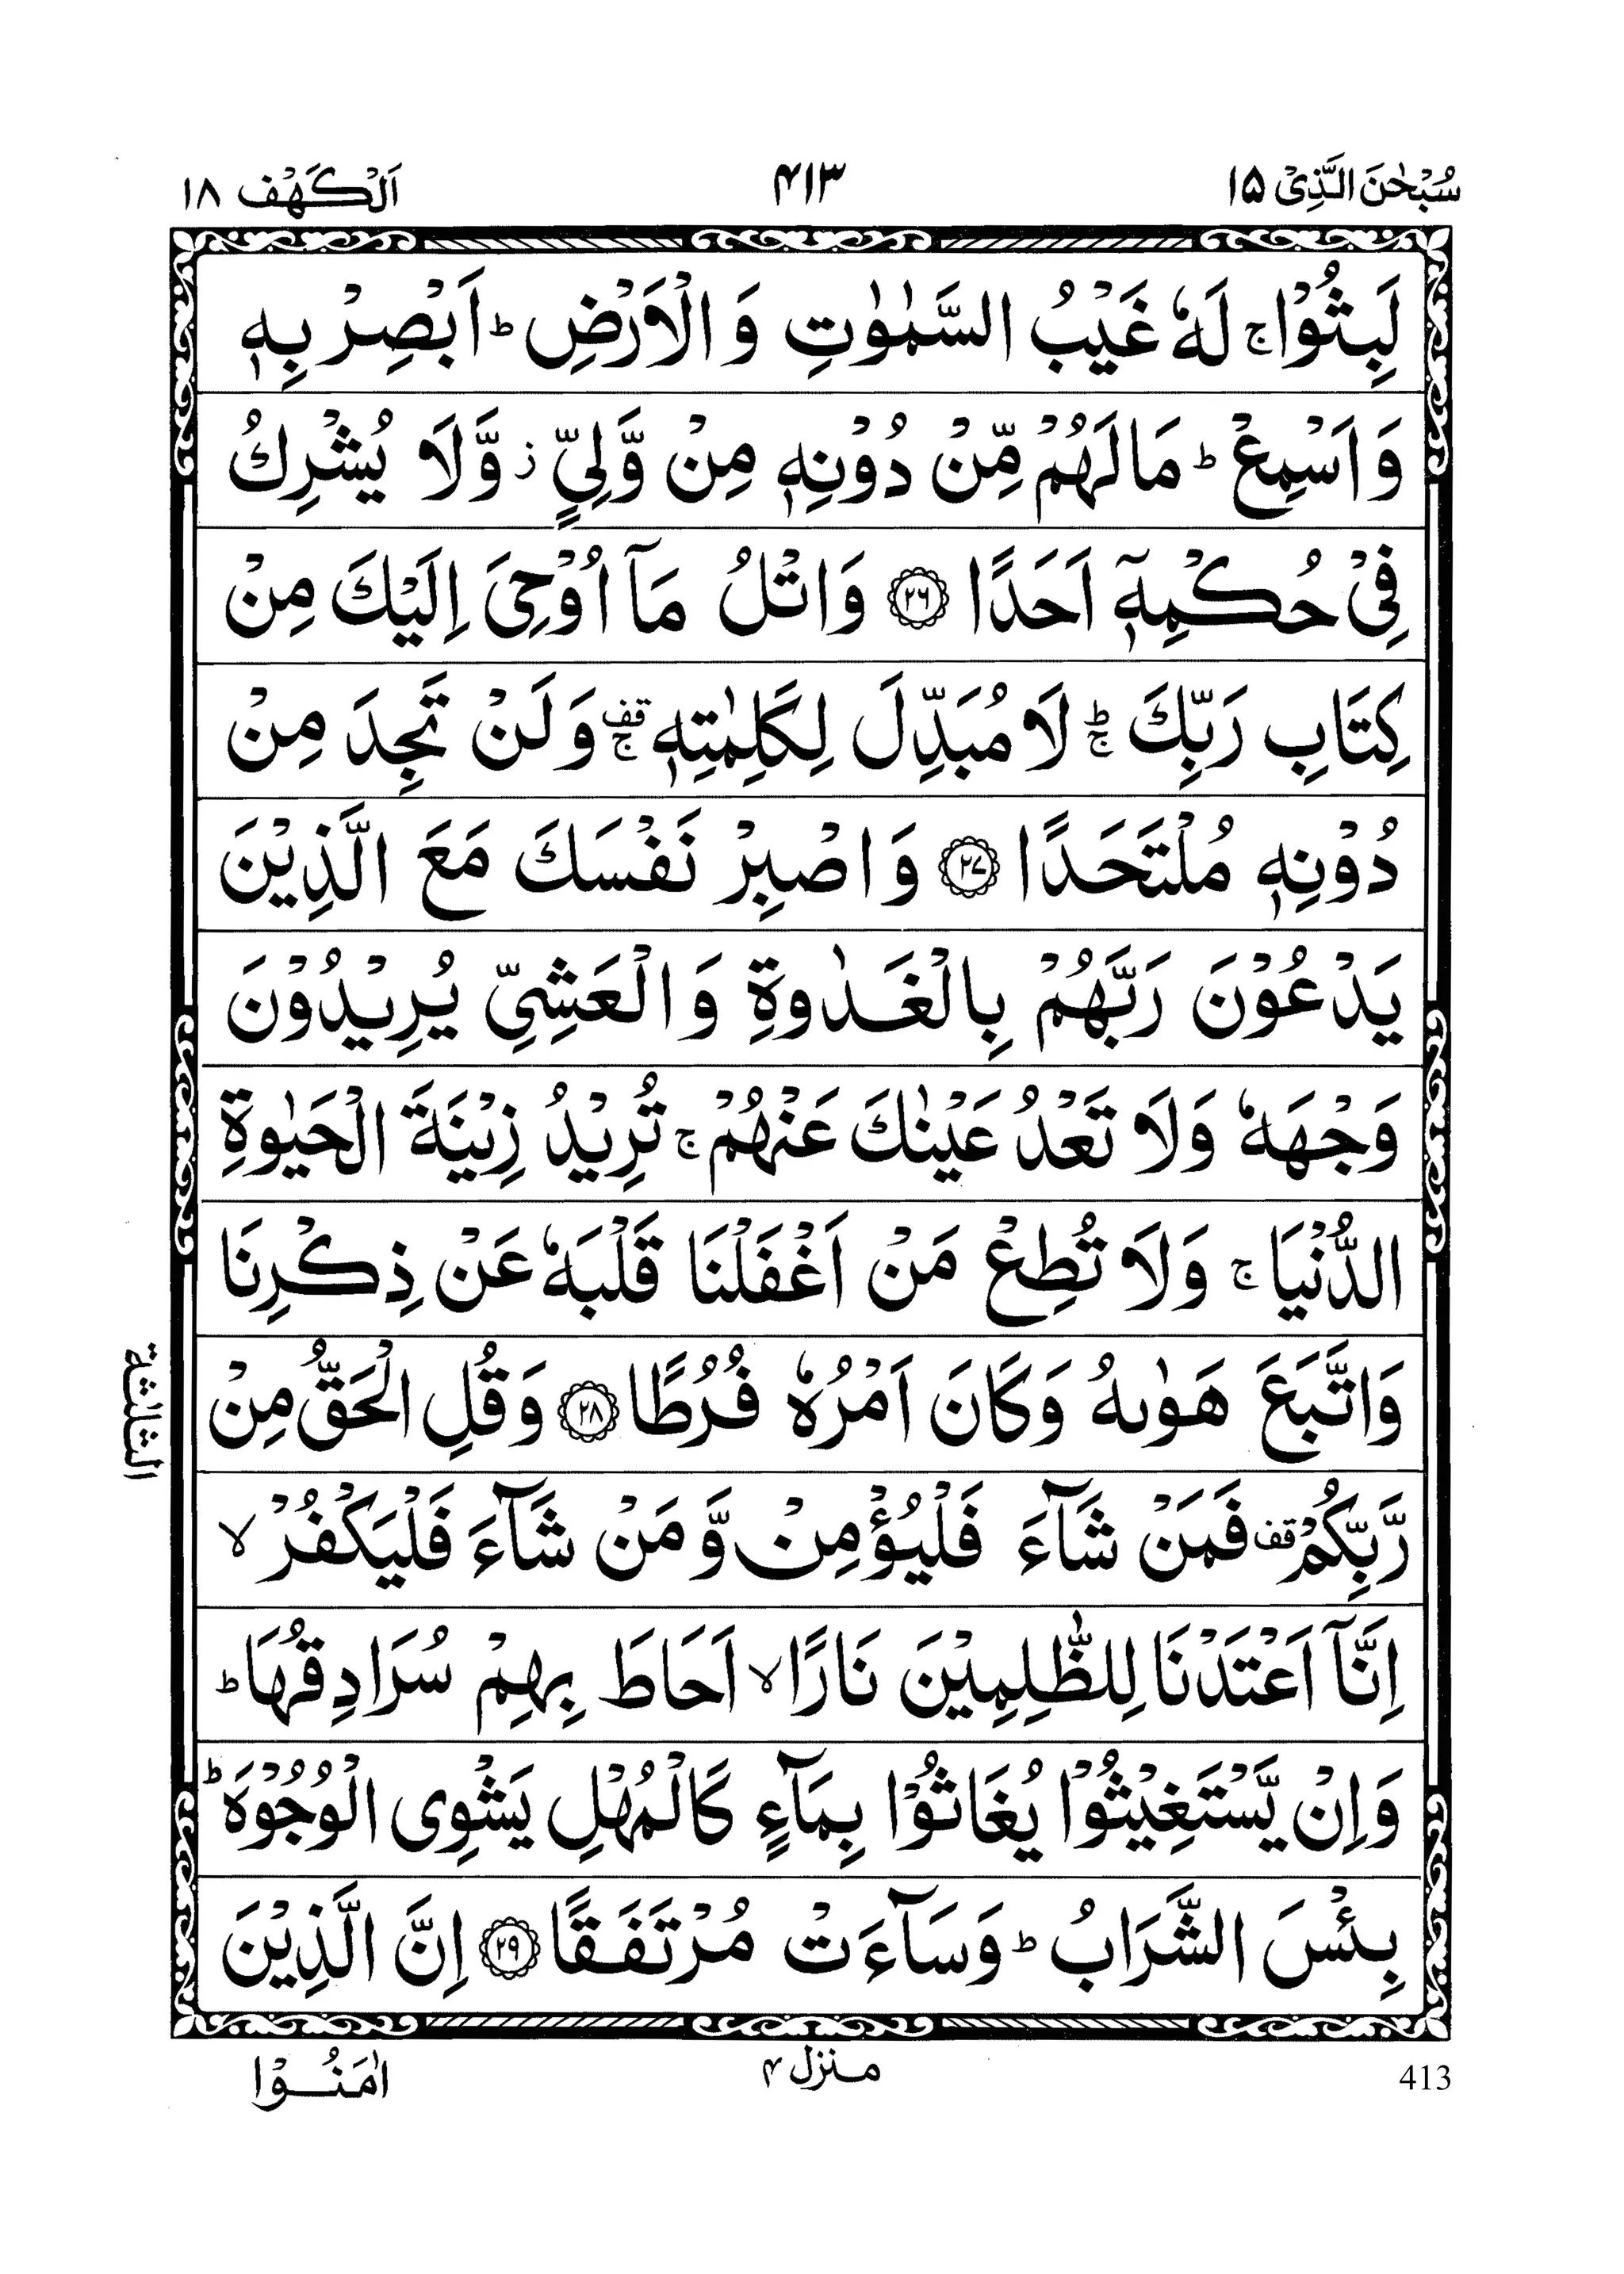 سُبْحٰنَ الَّذِیْ ۱۵
۴۱۳
اَلْكَهْف ۱۸
لَبِثُوْا ۚ لَهٗ غَیْبُ السَّمٰوٰتِ وَ الْاَرْضِ ؕ اَبْصِرْ بِهٖ
وَ اَسْمِعْ ؕ مَا لَهُمْ مِّنْ دُوْنِهٖ مِنْ وَّلِیٍّ ؗ وَّ لَا یُشْرِكُ
فِیْ حُكْمِهٖۤ اَحَدًا ۝۲۶ وَ اتْلُ مَاۤ اُوْحِیَ اِلَیْكَ مِنْ
كِتَابِ رَبِّكَ ؕۚ لَا مُبَدِّلَ لِكَلِمٰتِهٖ قف ۚ وَ لَنْ تَجِدَ مِنْ
دُوْنِهٖ مُلْتَحَدًا ۝۲۷ وَ اصْبِرْ نَفْسَكَ مَعَ الَّذِیْنَ
یَدْعُوْنَ رَبَّهُمْ بِالْغَدٰوةِ وَ الْعَشِیِّ یُرِیْدُوْنَ
وَجْهَهٗ وَ لَا تَعْدُ عَیْنٰكَ عَنْهُمْ ۚ تُرِیْدُ زِیْنَةَ الْحَیٰوةِ
الدُّنْیَا ۚ وَ لَا تُطِعْ مَنْ اَغْفَلْنَا قَلْبَهٗ عَنْ ذِكْرِنَا
وَ اتَّبَعَ هَوٰىهُ وَ كَانَ اَمْرُهٗ فُرُطًا ۝۲۸ وَ قُلِ الْحَقُّ مِنْ
رَّبِّكُمْ قف فَمَنْ شَآءَ فَلْیُؤْمِنْ وَّ مَنْ شَآءَ فَلْیَكْفُرْ ۙ
اِنَّاۤ اَعْتَدْنَا لِلظّٰلِمِیْنَ نَارًا ۙ اَحَاطَ بِهِمْ سُرَادِقُهَا ؕ
وَ اِنْ یَّسْتَغِیْثُوْا یُغَاثُوْا بِمَآءٍ كَالْمُهْلِ یَشْوِی الْوُجُوْهَ ؕ
بِئْسَ الشَّرَابُ ؕ وَ سَآءَتْ مُرْتَفَقًا ۝۲۹ اِنَّ الَّذِیْنَ
الثالثة
اٰمَنُوْا
منزل ۴
413